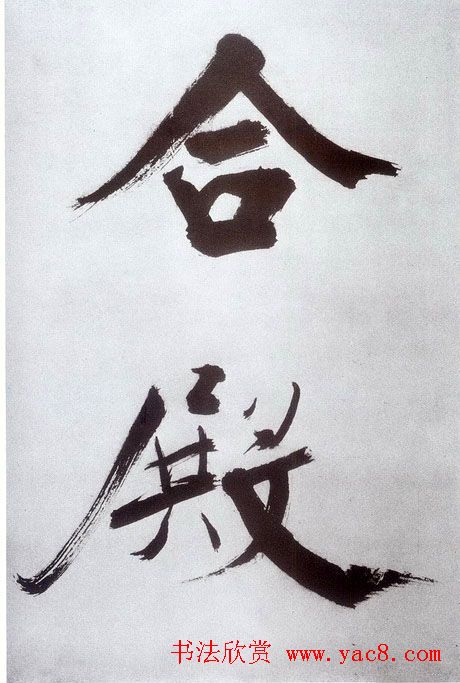 合
殿
书法欣赏 www.yac8.com